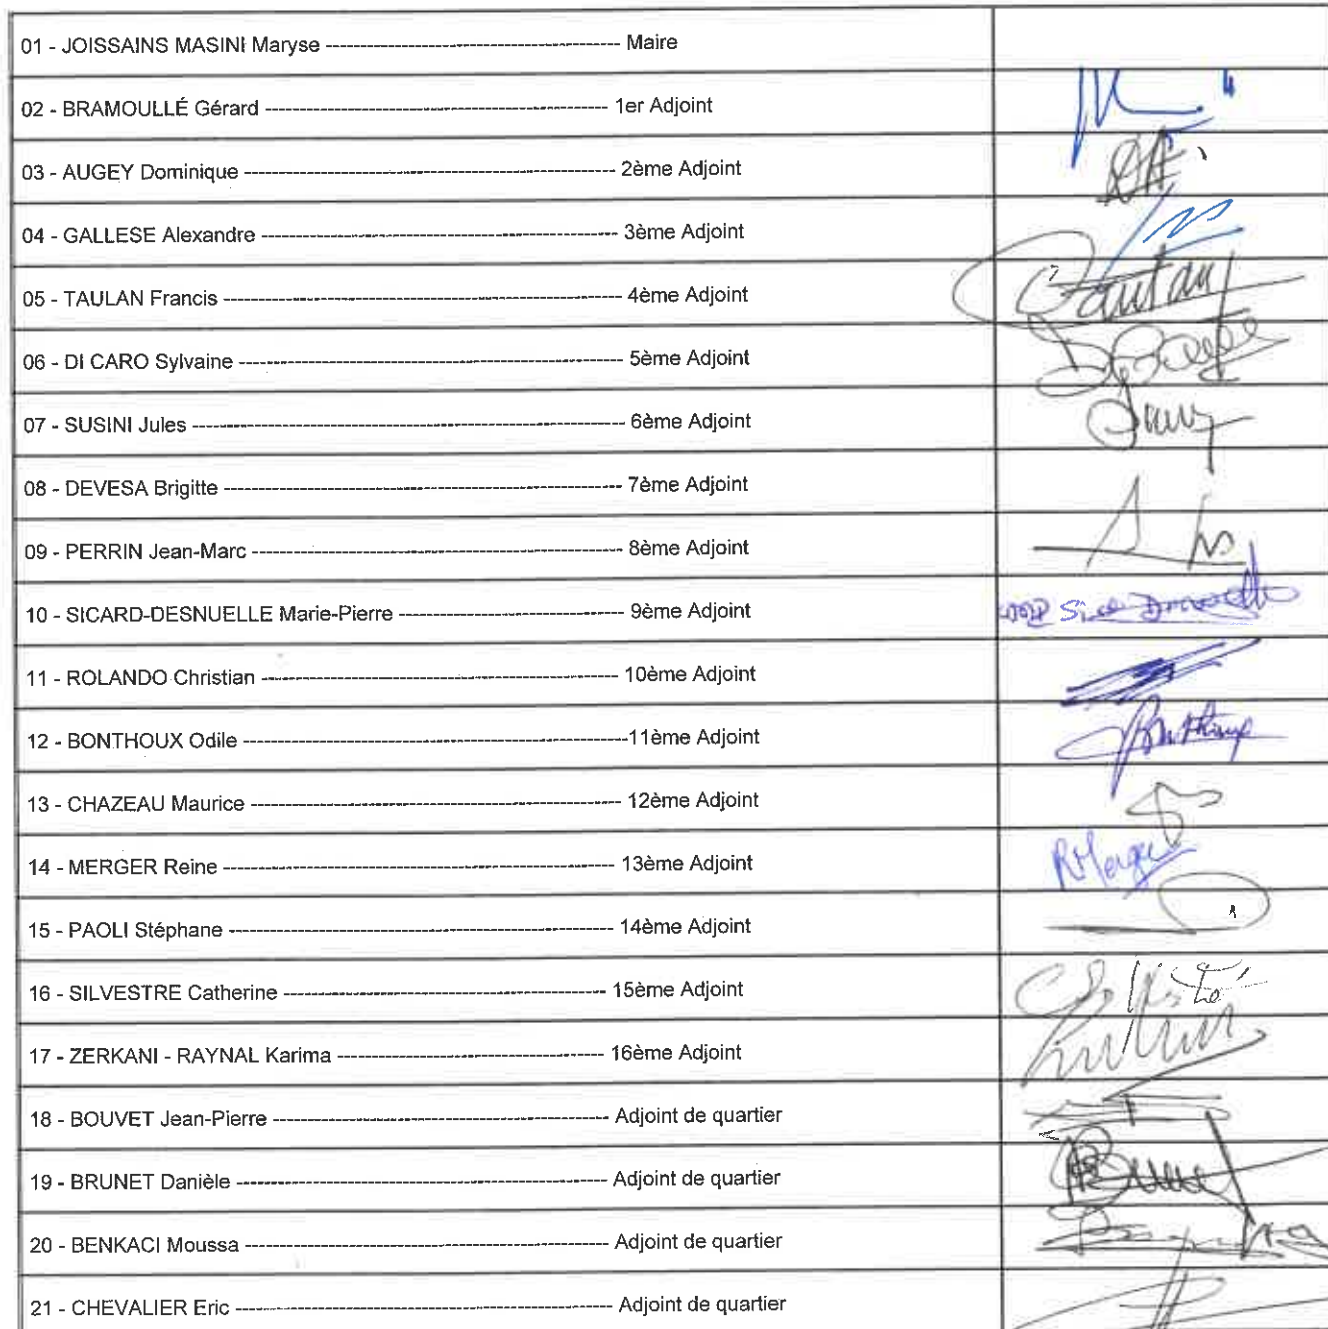 01 - JOISSAINS MASINI Maryse ---------- Maire
02 - BRAMOULLÉ Gérard ---------- 1er Adjoint
03 - AUGEY Dominique ---------- 2ème Adjoint
04 - GALLESE Alexandre ---------- 3ème Adjoint
05 - TAULAN Francis ---------- 4ème Adjoint
06 - DI CARO Sylvaine ---------- 5ème Adjoint
07 - SUSINI Jules ---------- 6ème Adjoint
08 - DEVESA Brigitte ---------- 7ème Adjoint
09 - PERRIN Jean-Marc ---------- 8ème Adjoint
10 - SICARD-DESNUELLE Marie-Pierre ---------- 9ème Adjoint
11 - ROLANDO Christian ---------- 10ème Adjoint
12 - BONTHOUX Odile ---------- 11ème Adjoint
13 - CHAZEAU Maurice ---------- 12ème Adjoint
14 - MERGER Reine ---------- 13ème Adjoint RMerger
15 - PAOLI Stéphane ---------- 14ème Adjoint
16 - SILVESTRE Catherine ---------- 15ème Adjoint
17 - ZERKANI - RAYNAL Karima ---------- 16ème Adjoint
18 - BOUVET Jean-Pierre ---------- Adjoint de quartier
19 - BRUNET Danièle ---------- Adjoint de quartier
20 - BENKACI Moussa ---------- Adjoint de quartier
21 - CHEVALIER Eric ---------- Adjoint de quartier